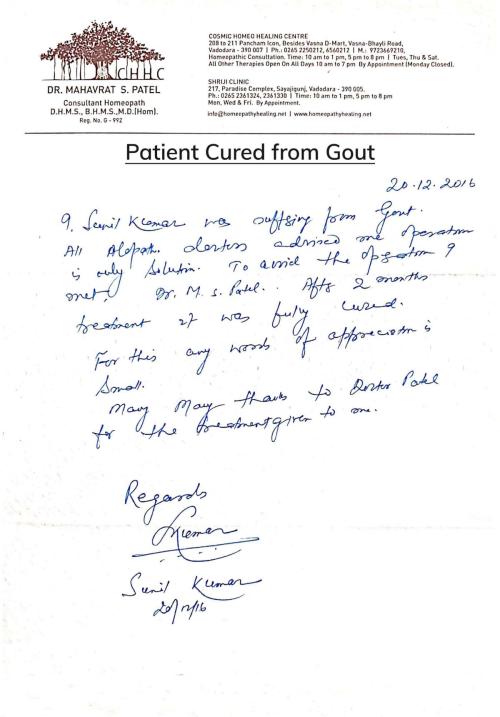 CHHC
DR. MAHAVRAT S. PATEL
Consultant Homeopath
D.H.M.S., B.H.M.S.,M.D.(Hom).
Reg. No. G - 992
COSMIC HOMEO HEALING CENTRE
208 to 211 Pancham Icon, Besides Vasna D-Mart, Vasna-Bhayli Road,
Vadodara - 390 007 | Ph.: 0265 2250212, 6560212 | M.: 9723669210,
Homeopathic Consultation. Time: 10 am to 1 pm, 5 pm to 8 pm | Tues, Thu & Sat.
All Other Therapies Open On All Days 10 am to 7 pm By Appointment (Monday Closed).
SHRIJI CLINIC
217, Paradise Complex, Sayajigunj, Vadodara - 390 005.
Ph.: 0265 2361324, 2361330 | Time: 10 am to 1 pm, 5 pm to 8 pm
Mon, Wed & Fri. By Appointment.
info@homeopathyhealing.net | www.homeopathyhealing.net
Patient Cured from Gout
20.12.2016
I, Sunil Kumar was suffering from Gout.
All Alopath. doctors advised me operation
is only solution. To avoid the operation I
met, Dr. M. S. Patel.. After 2 months
treatment it was fully cured.
For this any words of appreciation is
small.
Many Many thanks to Doctor Patel
for the treatment given to me.
Regards
Kumar
Sunil Kumar
20/12/16